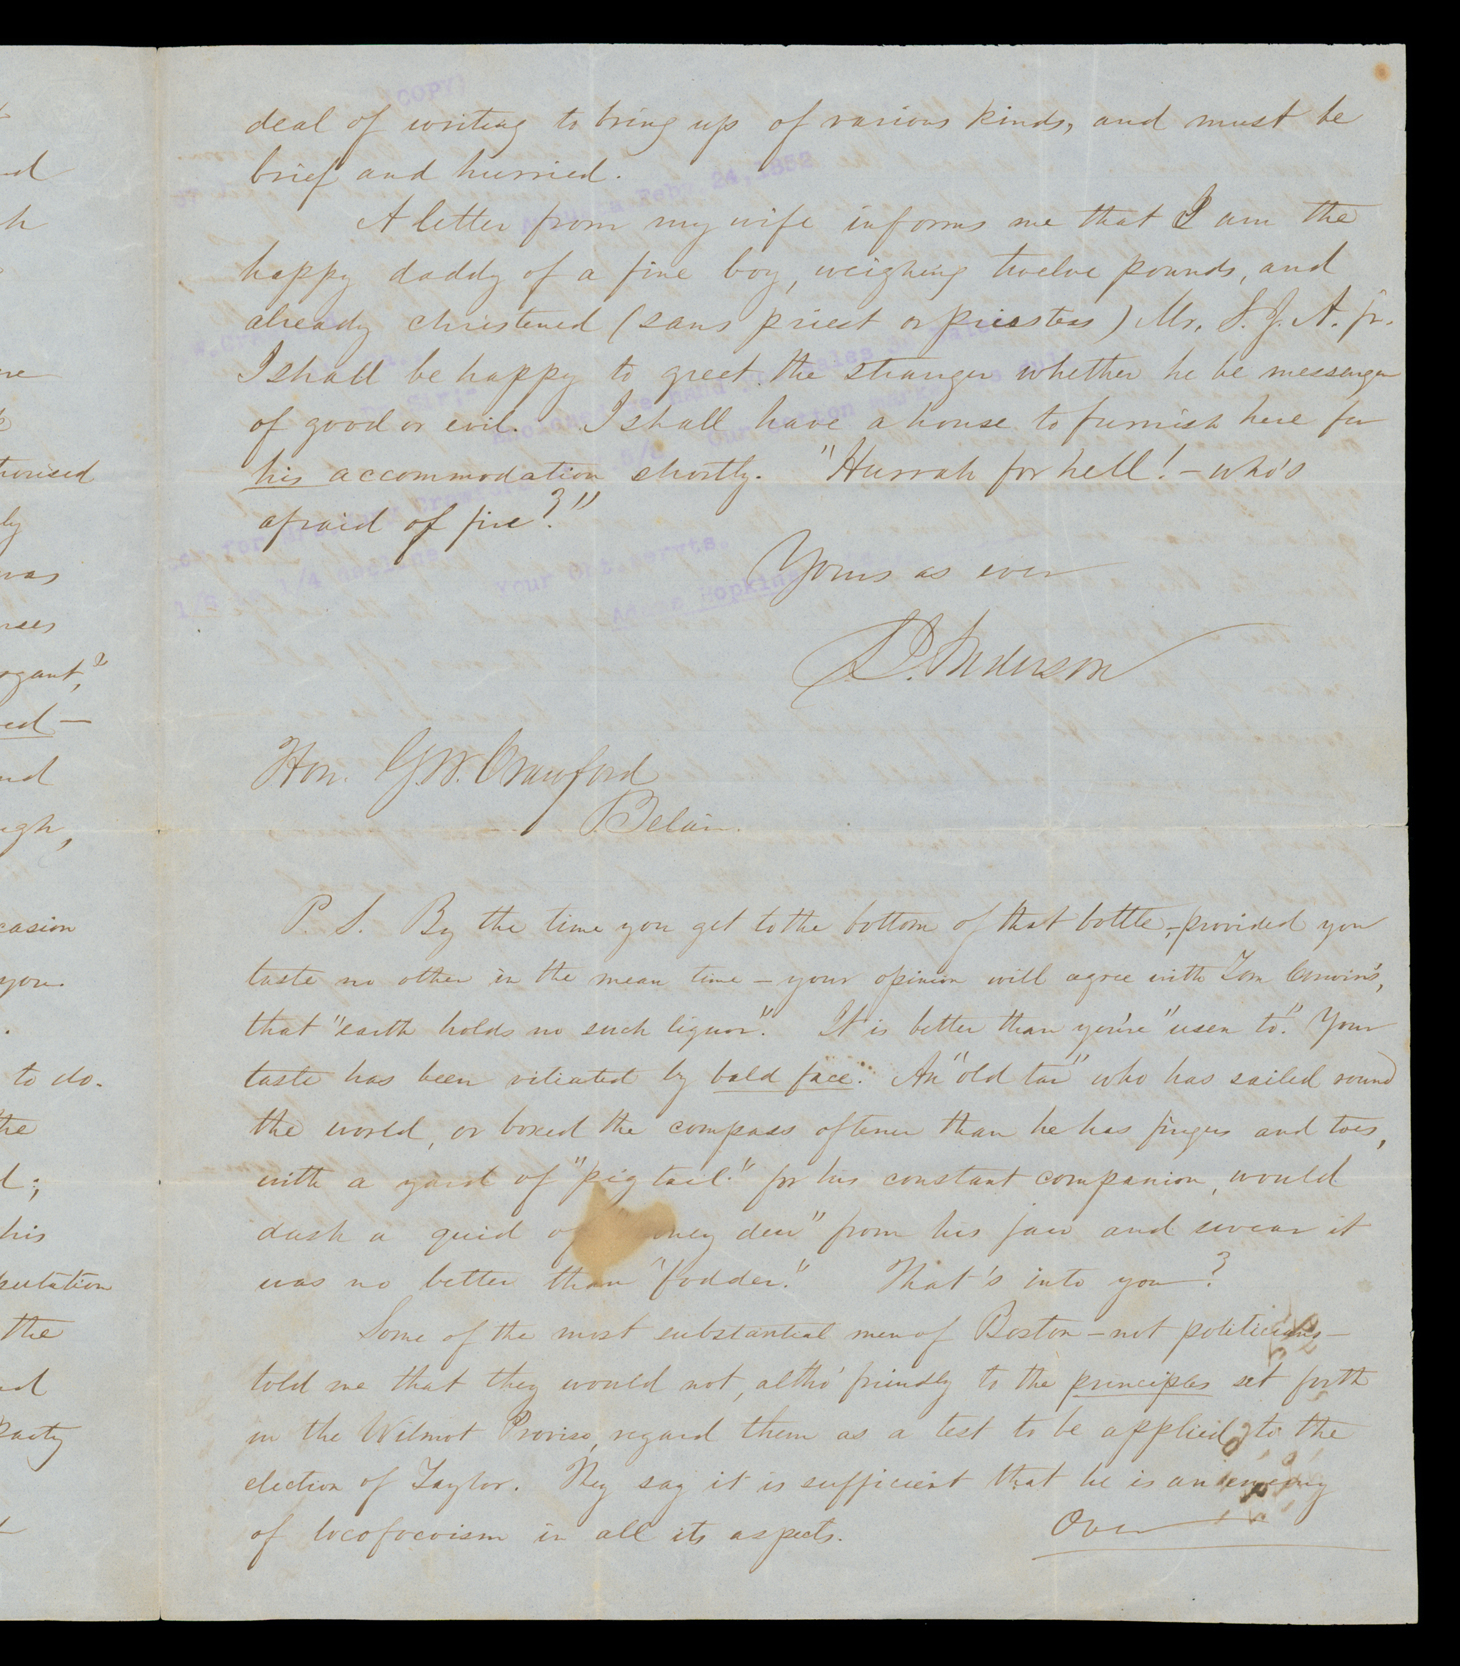 deal of writing to bring up of various kinds, and must be
brief and hurried.
A letter from my wife informs me that I am the
happy daddy of a fine boy, weighing twelve pounds, and
already christened (sans priest or priestess) Mr. S. J. A. jr.
I shall be happy to greet the stranger whether he be messenger
of good or evil. I shall have a house to furnish here for
his accommodation shortly. "Hurrah for hell! - who's
afraid of fire?"
Yours as ever
Anderson
Hon. G. W. Crawford
Belair.
P. S. By the time you get to the bottom of that bottle, - provided you
taste no other in the mean time - your opinion will agree with Tom Corwin's,
that "earth holds no such liquor". It is better than you're "usen to." Your
taste has been vitiated by bald face. An "old tar" who has sailed round
the world, or boxed the compass oftener than he has fingers and toes,
with a yard of "pig tail" for his constant companion, would
dash a quid of oney dew" from his jaw and swear it
was no better than "fodder." That's into you?
Some of the most substantial men of Boston - not politicians -
told me that they would not, altho' friendly to the principles set forth
in the Wilmot Proviso, regard them as a test to be applied to the
election of Taylor. They say it is sufficient that he is an enemy
of locofocoism in all its aspects.
Over
COPY:
Feb. 24, 1852
Your Obt. servts.
Hopkins
horised
ly
was
ogant,"
ed -
casion
you.
to do.
the
his
putation
the
Party